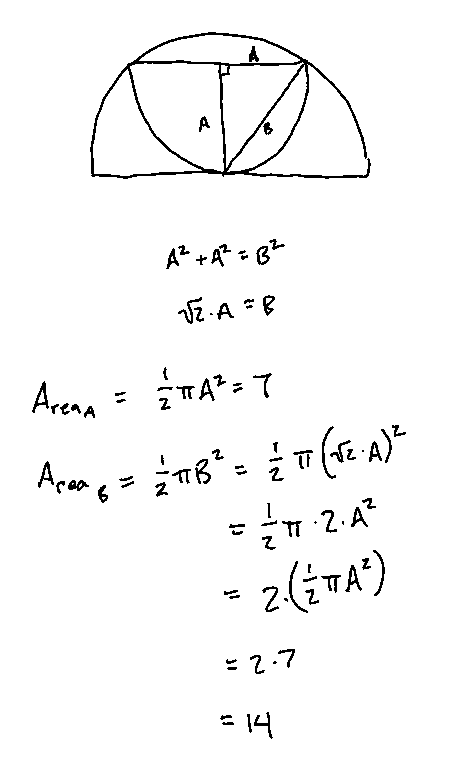 A
A
B
A² + A² = B²
√2 · A = B
Area_A = ½ π A² = 7
Area_B = ½ π B² = ½ π (√2 · A)²
= ½ π · 2 · A²
= 2 · (½ π A²)
= 2 · 7
= 14